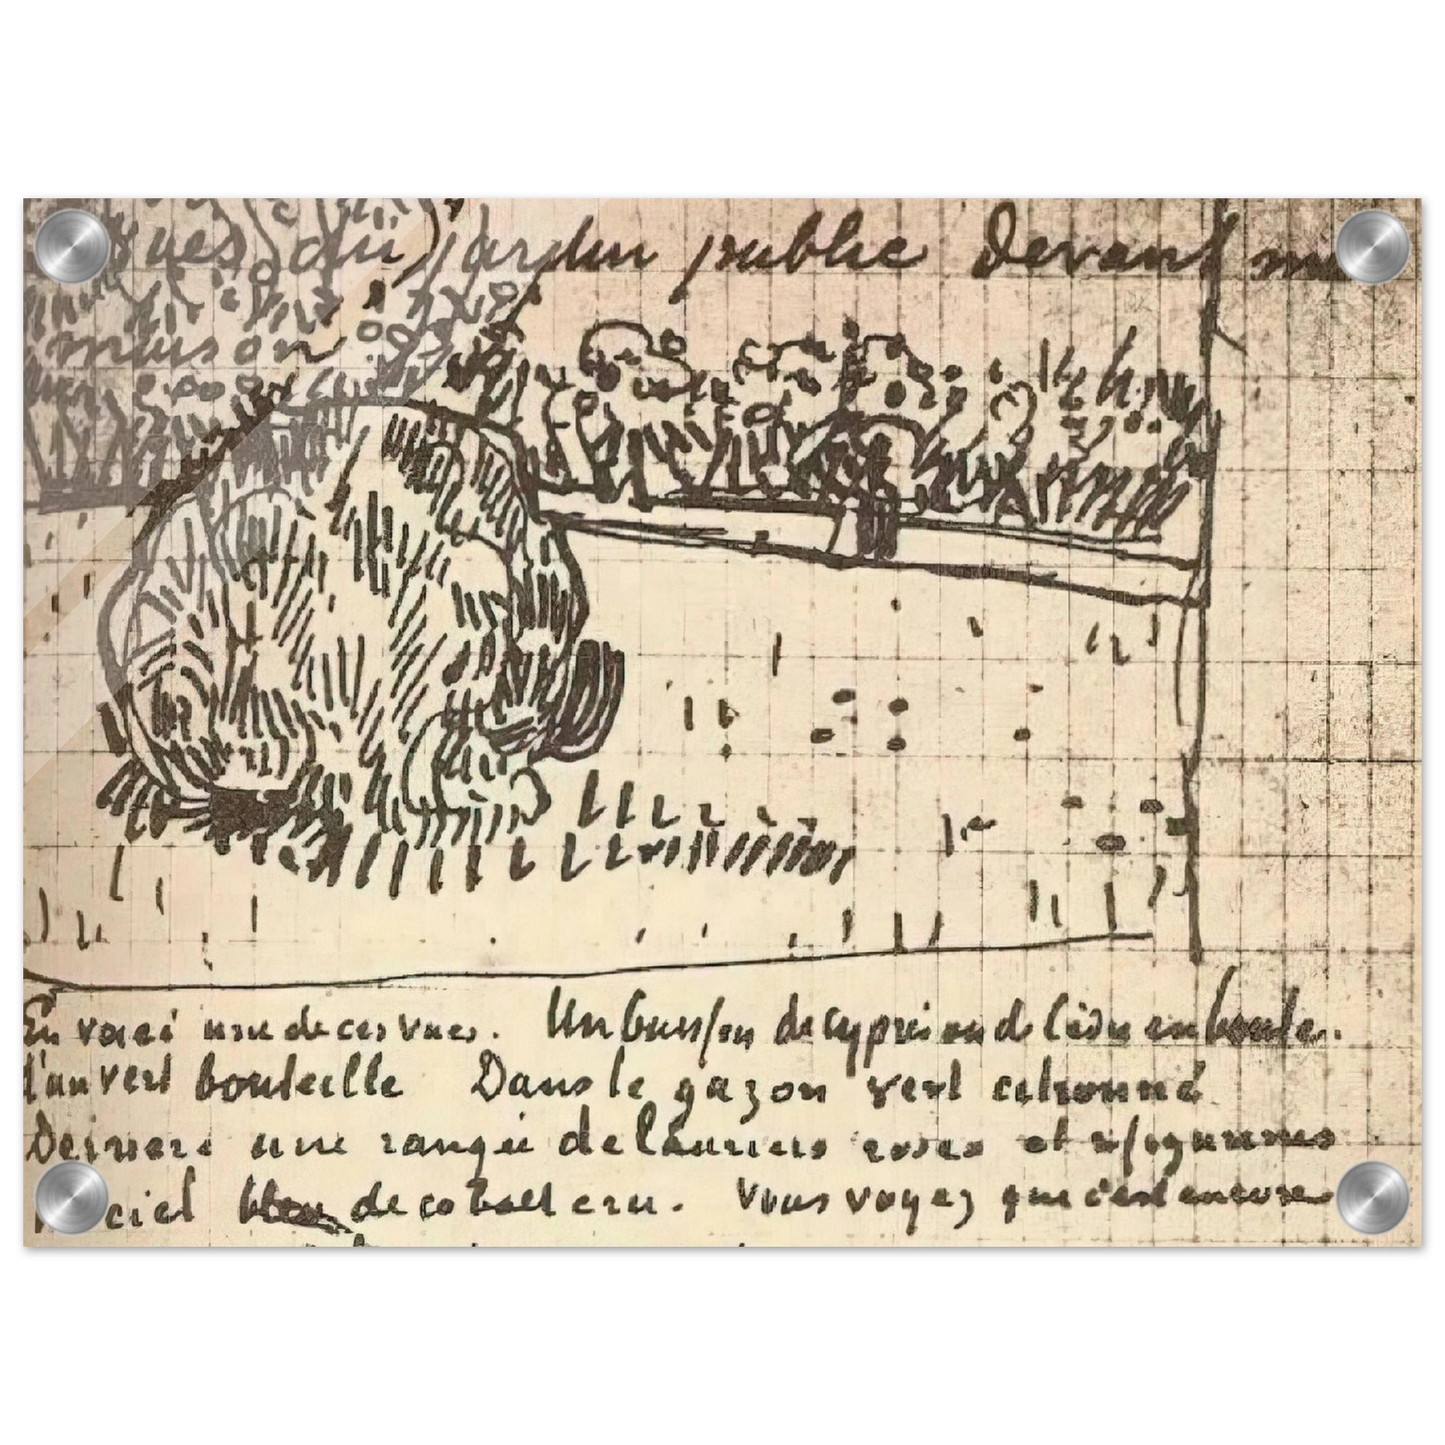 vues du jardin public devant ma
maison
En voici une de ces vues. Un buisson de cyprès rond bien en boule.
d'un vert bouteille Dans le gazon vert citronné
Derriere une rangée de lauriers roses et
ciel bleu de cobalt cru. Vous voyez que c'est encore